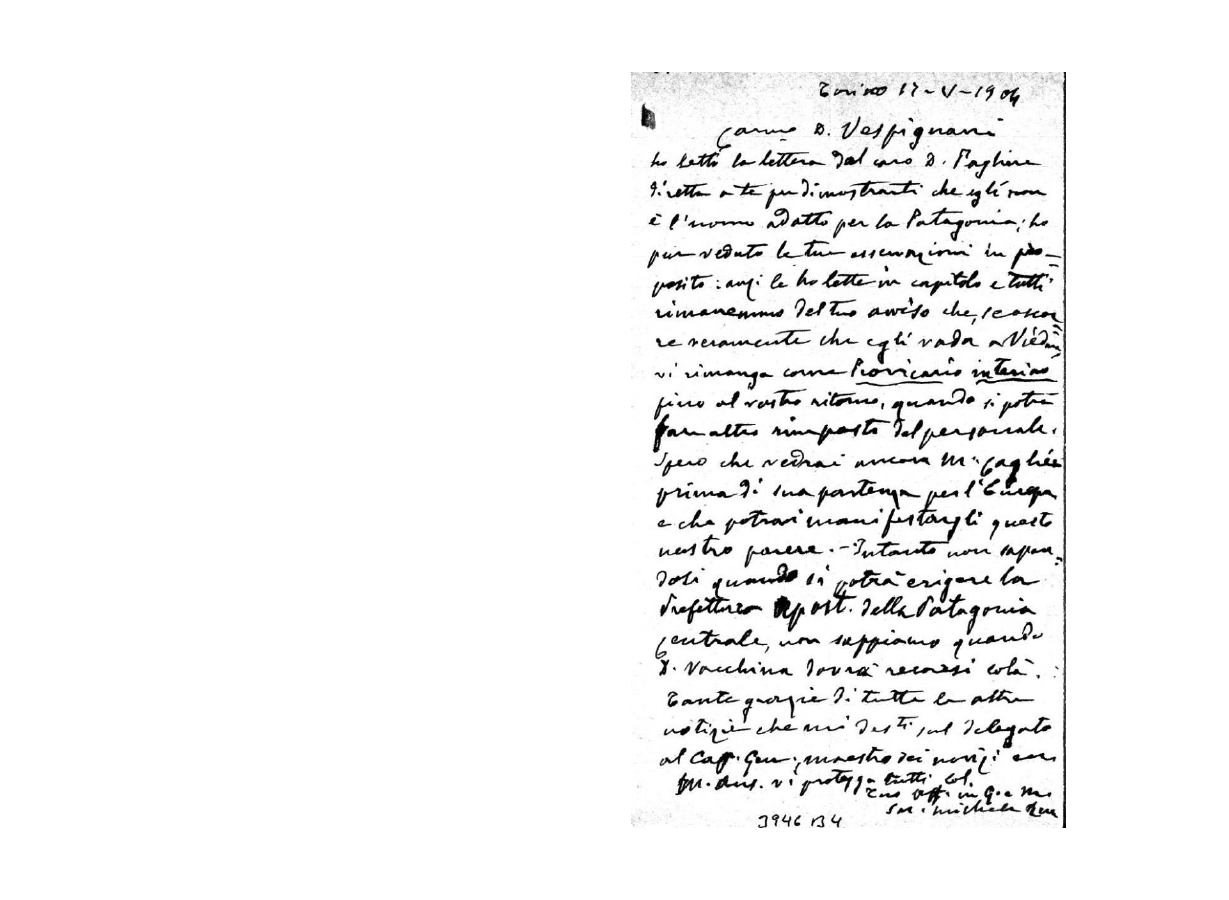 Torino 17-V-1904
Carmo D. Vespignani
ho letto la lettera del caro D. Pagliere
diretta a te per dimostrarti che egli non
è l'uomo adatto per la Patagonia; ho
pur veduto le tue osservazioni in pro=
posito: anzi le ho lette in capitolo e tutti
rimanemmo del tuo avviso che, se occor=
re veramente che egli vada a Viedma,
vi rimanga come Provicario interino
fino al vostro ritorno, quando si potrà
fare altro rimpasto del personale.
Spero che vedrai ancora Mr Cagliero
prima di sua partenza per l'Europa
e che potrai manifestargli questo
nostro parere. - Intanto non sapen=
dosi quando si potrà erigere la
Prefettura Apost. della Patagonia
Centrale, non sappiamo quando
D. Vacchina dovrà recarsi colà.
Tante grazie di tutte le altre
notizie che mi desti sul delegato
al Cap. Gen., maestro dei novizi ecc.
M. Aus. vi protegga tutti col.
Tuo aff. in G. e M.
Sac. Michele Rua
3946 B4